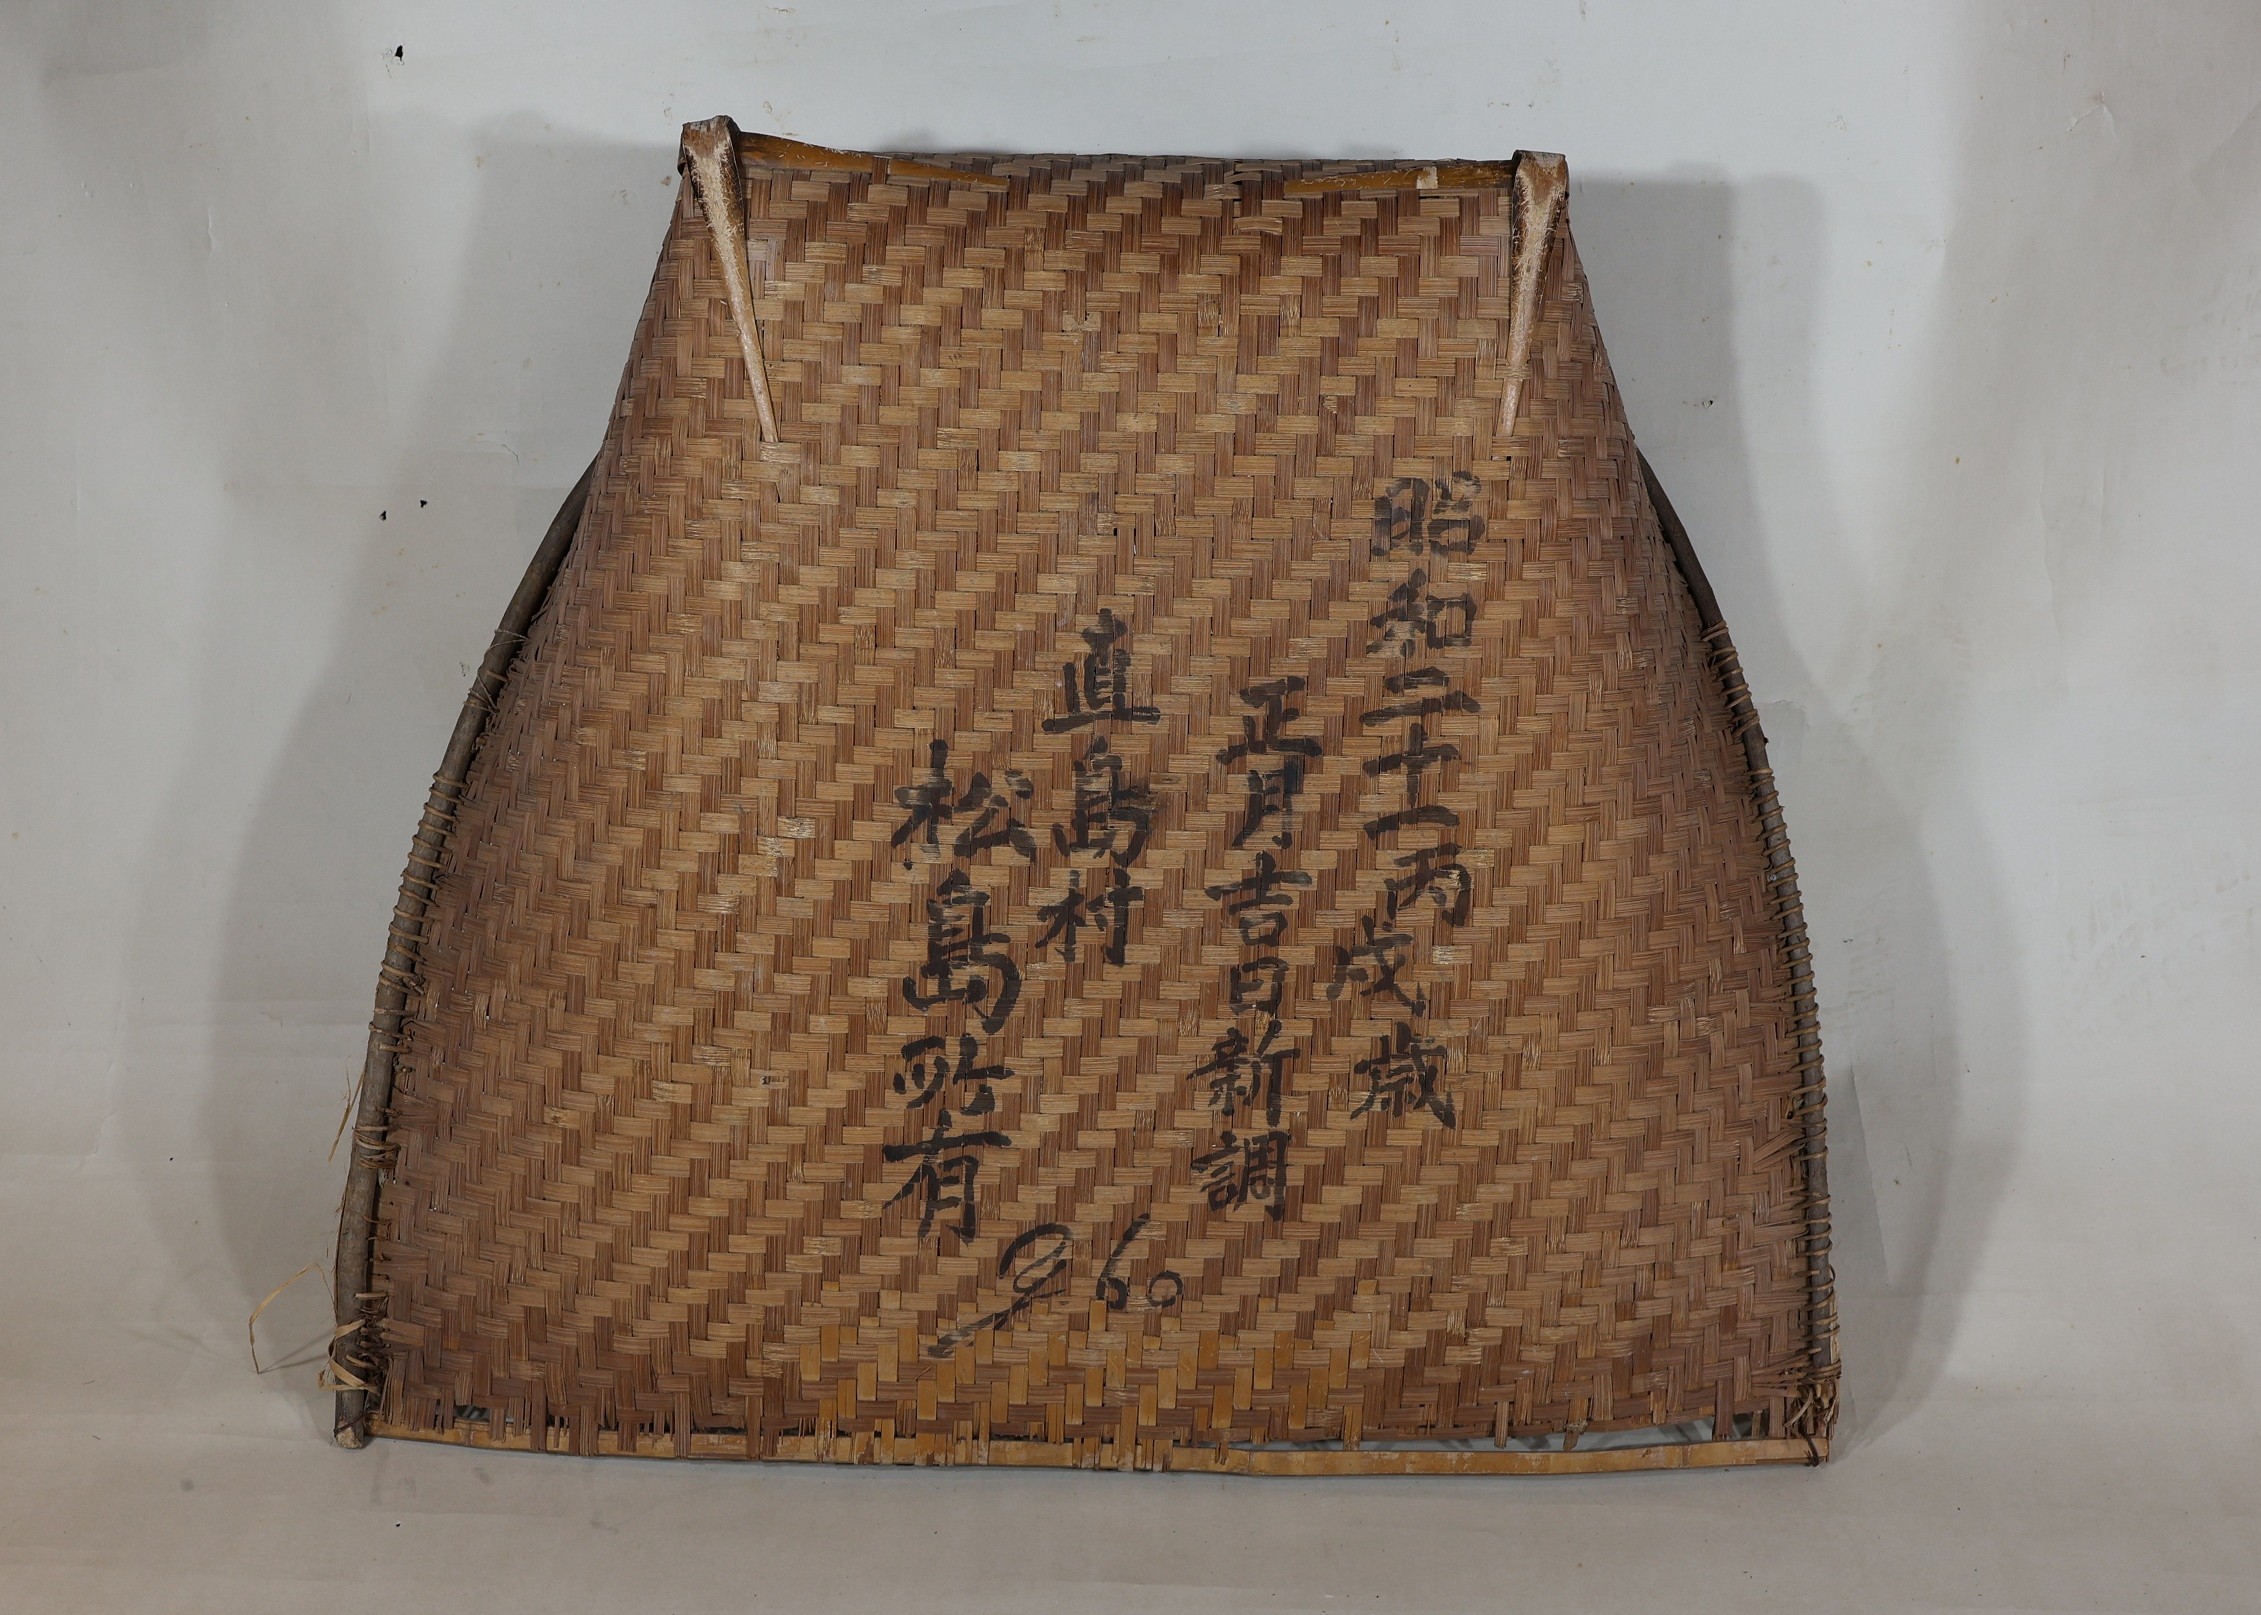 昭和二十一丙戌歳
正月吉日新調
直島村
松島所有
2.60